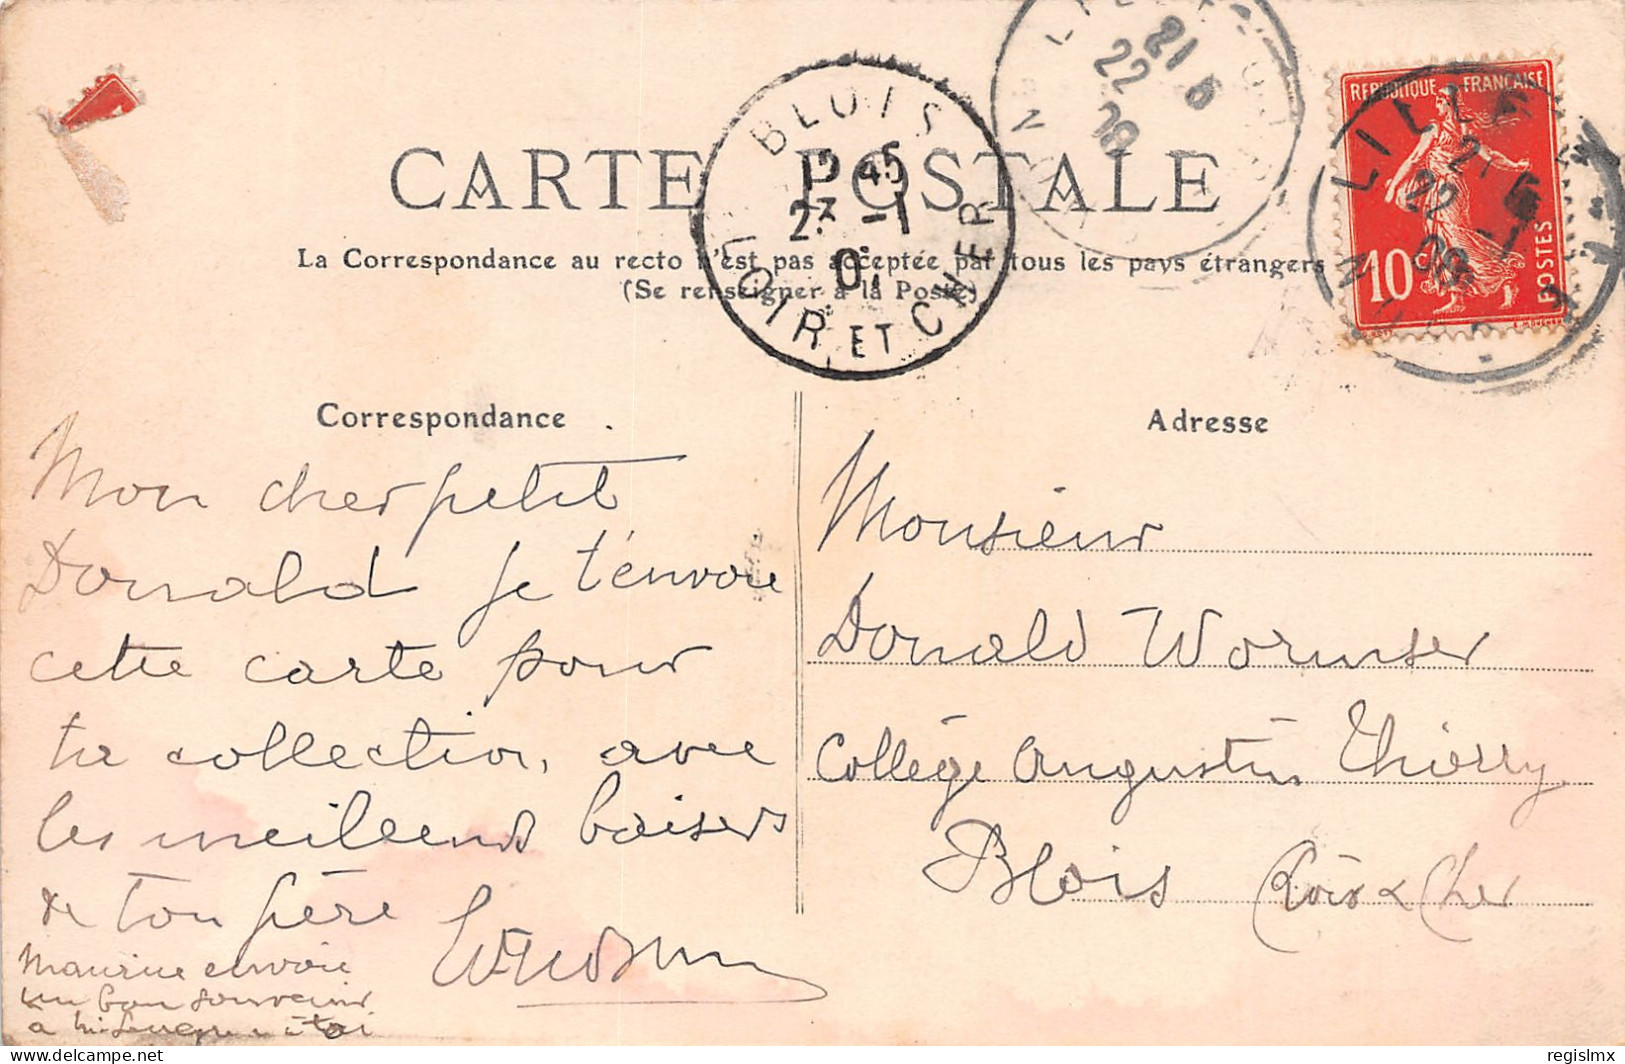 CARTE POSTALE
La Correspondance au recto n'est pas acceptée par tous les pays étrangers
(Se renseigner à la Poste)
BLOIS
13 45
23 -1
LOIR ET CHER
21
22
08
REPUBLIQUE FRANÇAISE
10 c
POSTES
LILLE
21
22 -1
08
NORD
Correspondance
Mon cher petit
Donald je t'envoie
cette carte pour
ta collection, avec
les meilleurs baisers
de ton père
Maurice envoie
un bon souvenir
à
à toi
Adresse
Monsieur
Donald Wormser
Collège Augustin Thierry
Blois (Loir & Cher
delcampe.net
regislmx